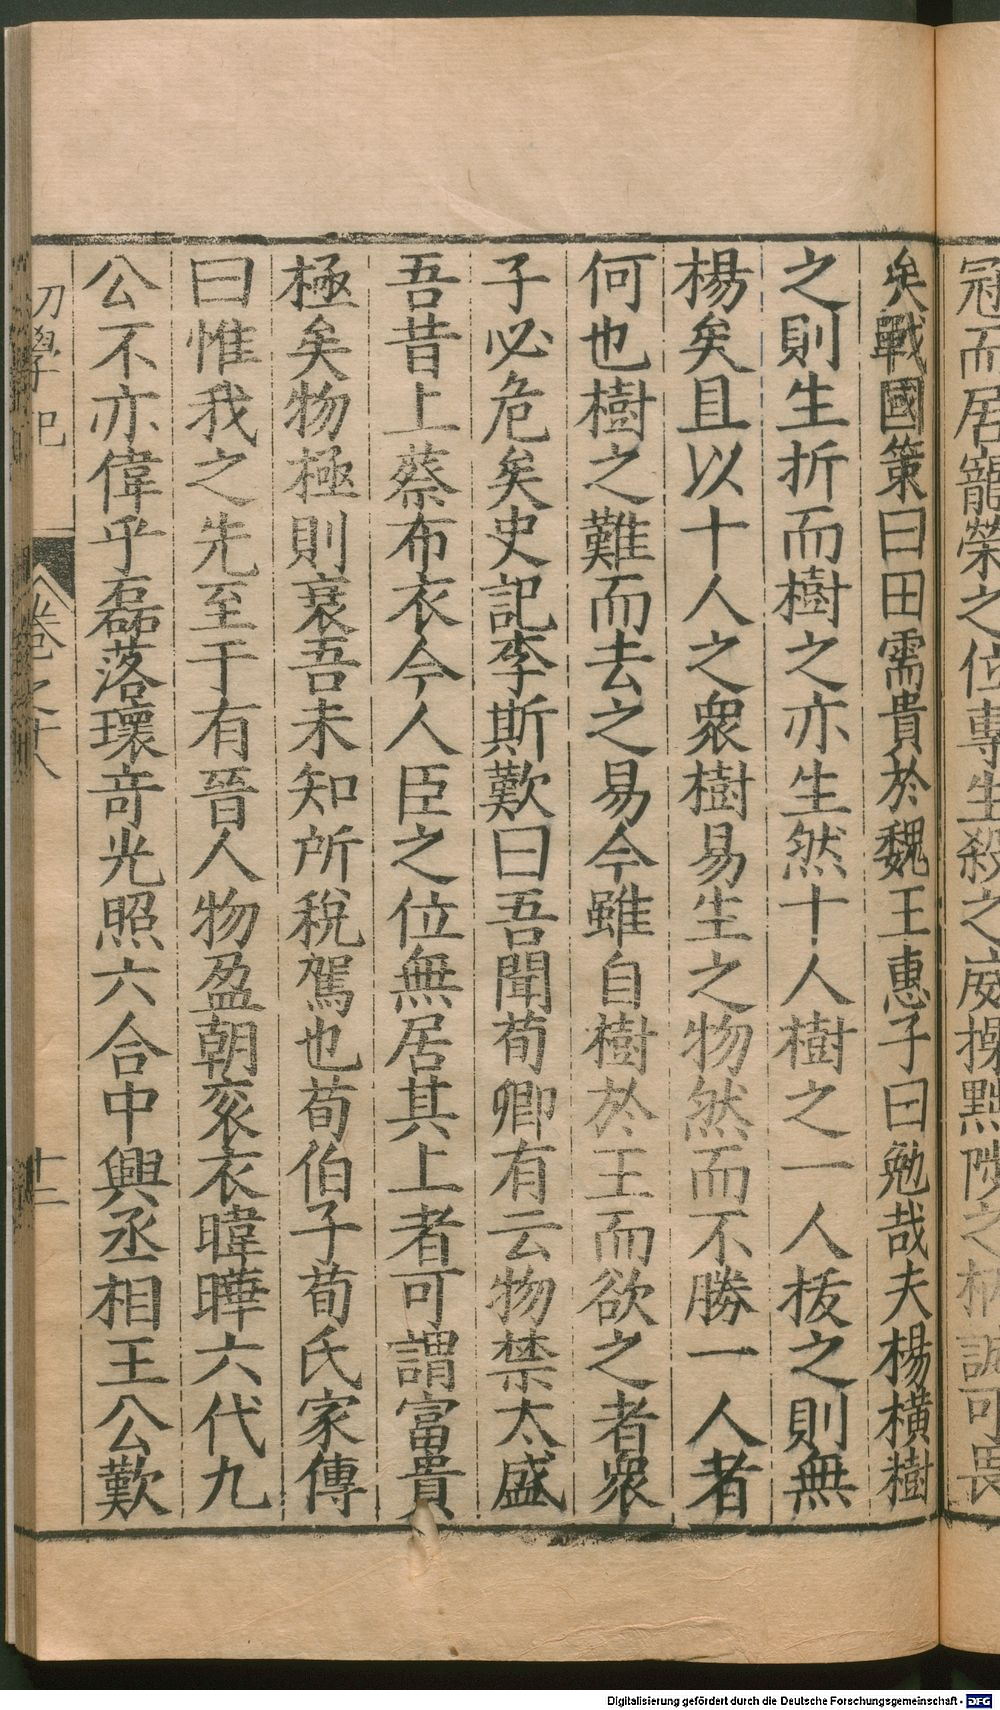 冠而居寵榮之位專生殺之威操黜陟之柄誠可畏
矣戰國策曰田需貴於魏王惠子曰勉哉夫楊橫樹
之則生折而樹之亦生然十人樹之一人㧞之則無
楊矣且以十人之衆樹易生之物然而不勝一人者
何也樹之難而去之易今雖自樹於王而欲之者衆
子必危矣史記李斯歎曰吾聞荀卿有云物禁太盛
吾昔上蔡布衣今人臣之位無居其上者可謂富貴
極矣物極則衰吾未知所稅駕也荀伯子荀氏家傳
曰惟我之先至于有晉人物盈朝袞衣暐曄六代九
公不亦偉乎磊落瓌奇光照六合中興丞相王公歎
初學記
卷之十八
十二
Digitalisierung gefördert durch die Deutsche Forschungsgemeinschaft - DFG